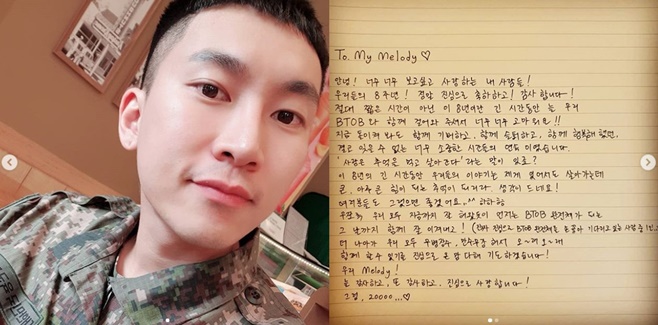 To. My Melody ♡
안녕! 너무 너무 보고싶고 사랑하는 내 사람들!
우리들의 8주년! 정말 진심으로 축하하고! 감사합니다!
절대 짧은 시간이 아닌 이 8년이란 긴 시간동안 늘 우리
BTOB 다 함께 걸어와 주셔서 너무 너무 고마워요!!
지금 돌이켜 봐도 함께 기뻐하고, 함께 슬퍼하고, 함께 행복해 했던,
결코 잊을 수 없는 너무 소중한 시간들의 연속이었습니다.
'사람은 추억을 먹고 살아간다' 라는 말이 있죠?
이 8년의 긴 시간동안 우리들의 이야기는 제게 있어서도 살아가는데
큰, 아주 큰 힘이 되는 추억이 되리라 생각이 드네요!
여러분들도 그랬으면 좋겠어요.^^ 하하하
우리 모두 지금까지 잘 해왔듯이 언제나 BTOB 완전체가 되는
그 날까지 함께 잘 이겨내고! (진짜 진심으로 BTOB 완전체를 손꼽아 기다리고 있는 사람 중 1인..)
더 나아가 우리 모두 무병장수, 만수무강 해서 오~래 오~래
함께 할 수 있기를 진심으로 온 맘 다해 기도하겠습니다!
우리 Melody!
늘 감사하고, 또 감사하고, 진심으로 사랑합니다!
그럼, 20000...♡